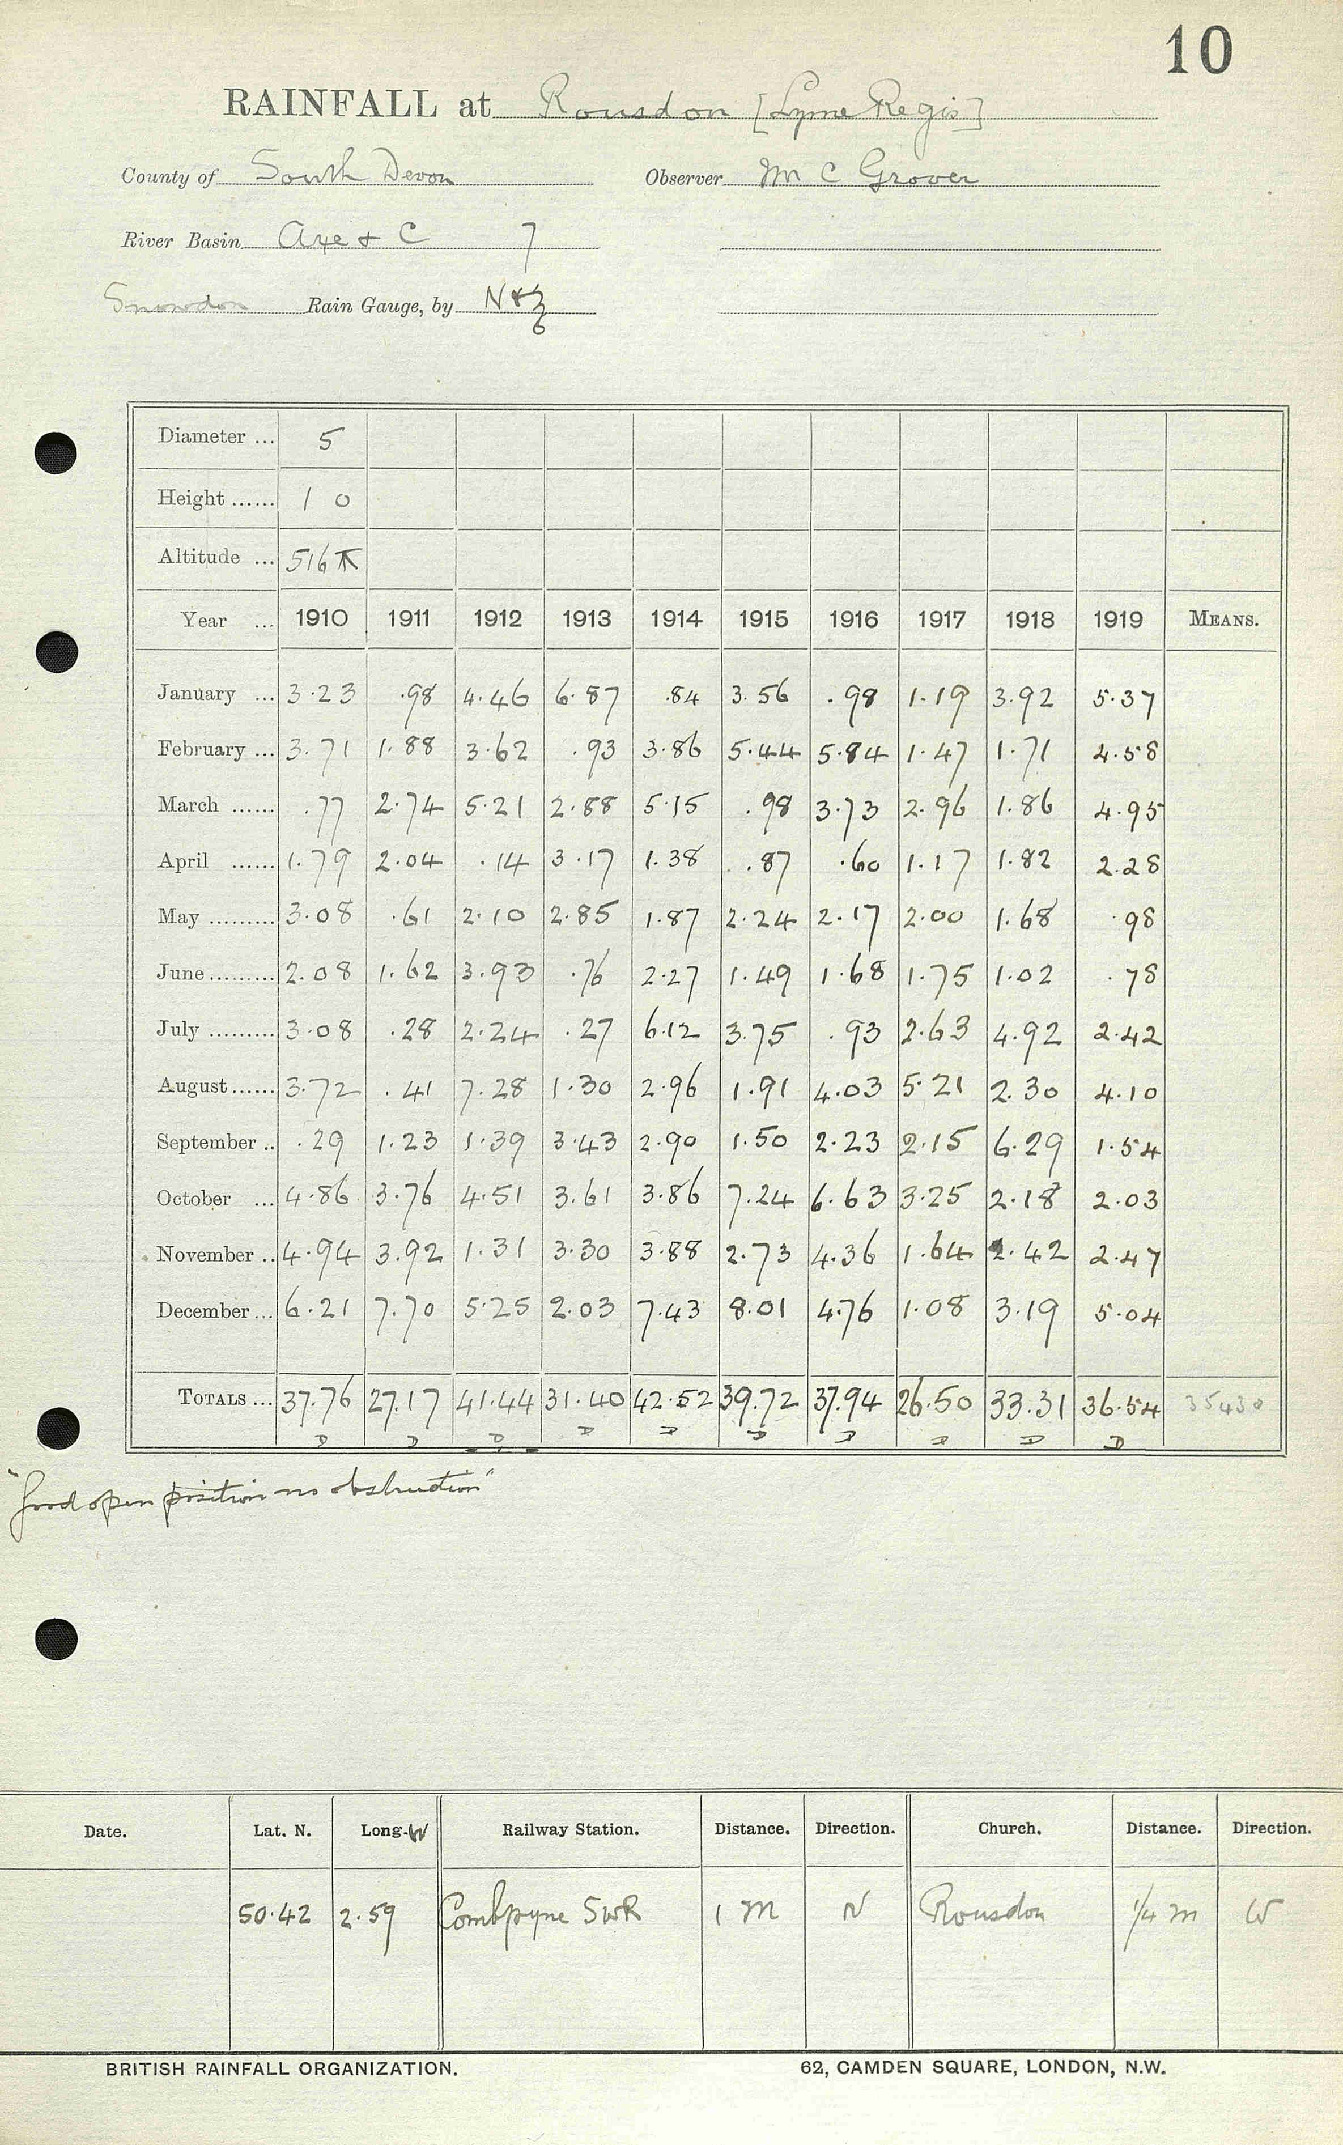 10
RAINFALL at Rousdon [Lyme Regis]
County of South Devon Observer Mr C Grover
River Basin Axe & C 7
Snowdon Rain Gauge, by N & Z
Diameter ... 5
Height ...... 1 0
Altitude ... 516
Year ... 1910 1911 1912 1913 1914 1915 1916 1917 1918 1919 MEANS.
January ... 3.23 .98 4.46 6.87 .84 3.56 .98 1.19 3.92 5.37
February ... 3.71 1.88 3.62 .93 3.86 5.44 5.84 1.47 1.71 4.58
March ...... .77 2.74 5.21 2.88 5.15 .98 3.73 2.96 1.86 4.95
April ...... 1.79 2.04 .14 3.17 1.38 .87 .60 1.17 1.82 2.28
May ......... 3.08 .61 2.10 2.85 1.87 2.24 2.17 2.00 1.68 .98
June ......... 2.08 1.62 3.93 .76 2.27 1.49 1.68 1.75 1.02 .78
July ......... 3.08 .28 2.24 .27 6.12 3.75 .93 2.63 4.92 2.42
August ...... 3.72 .41 7.28 1.30 2.96 1.91 4.03 5.21 2.30 4.10
September .. .29 1.23 1.39 3.43 2.90 1.50 2.23 2.15 6.29 1.54
October ... 4.86 3.76 4.51 3.61 3.86 7.24 6.63 3.25 2.18 2.03
November .. 4.94 3.92 1.31 3.30 3.88 2.73 4.36 1.64 2.42 2.47
December ... 6.21 7.70 5.25 2.03 7.43 8.01 4.76 1.08 3.19 5.04
TOTALS ... 37.76 27.17 41.44 31.40 42.52 39.72 37.94 26.50 33.31 36.54 35430
D D D D D D D D D D
"Good open position no obstruction"
Date. Lat. N. Long. W Railway Station. Distance. Direction. Church. Distance. Direction.
50.42 2.59 Combpyne SWR 1 M N Rousdon 1/4 m W
BRITISH RAINFALL ORGANIZATION. 62, CAMDEN SQUARE, LONDON, N.W.